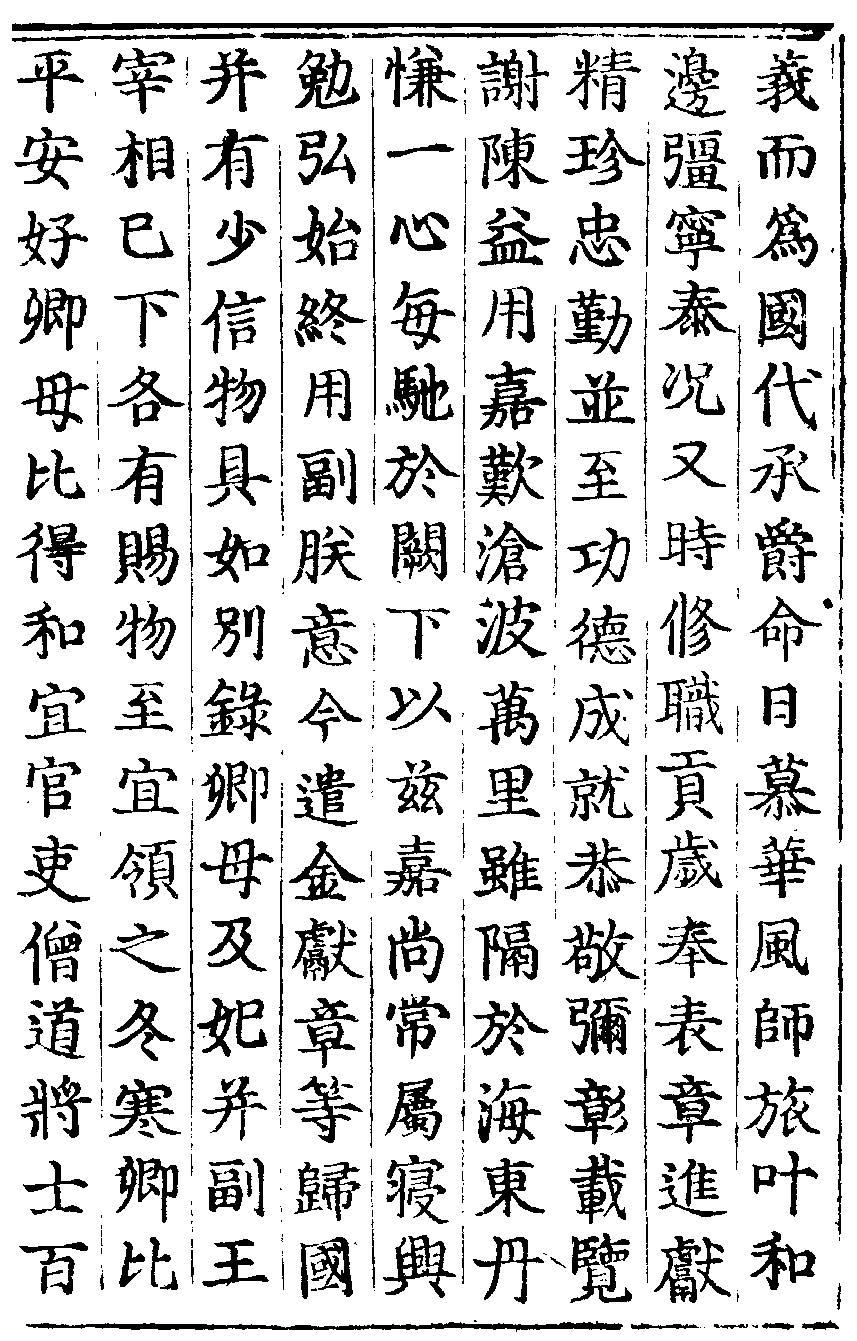 義而爲國代承爵命日慕華風師旅叶和
邊彊寧泰况又時修職貢歲奉表章進獻
精珍忠勤並至功德成就恭敬彌彰載覽
謝陳益用嘉歎滄波萬里雖隔於海東丹
慊一心每馳於闕下以兹嘉尚常屬寝興
勉弘始終用副朕意今遣金獻章等歸國
并有少信物具如别錄卿母及妃并副王
宰相已下各有賜物至宜領之冬寒卿比
平安好卿母比得和宜官吏僧道將士百